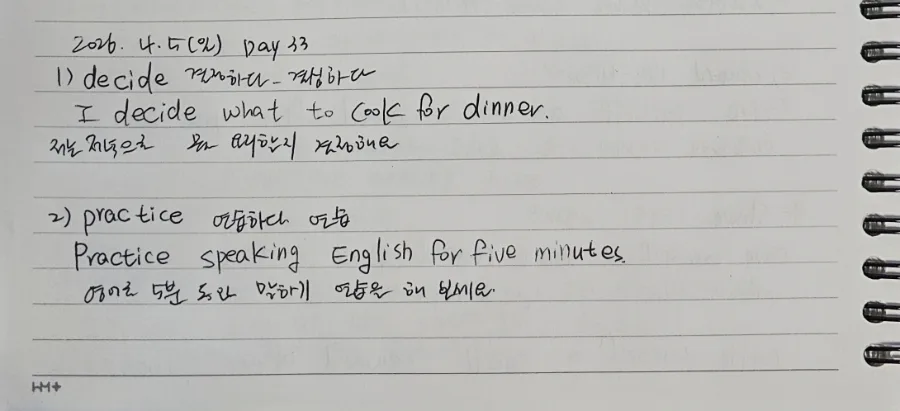 2026. 4. 5 (일) Day 33
1) decide 결정하다 - 결심하다
I decide what to cook for dinner.
저는 저녁으로 뭘 요리할지 결정해요
2) practice 연습하다 연습
Practice speaking English for five minutes.
영어로 5분 동안 말하기 연습을 해 보세요.